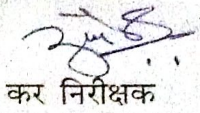 कर निरीक्षक